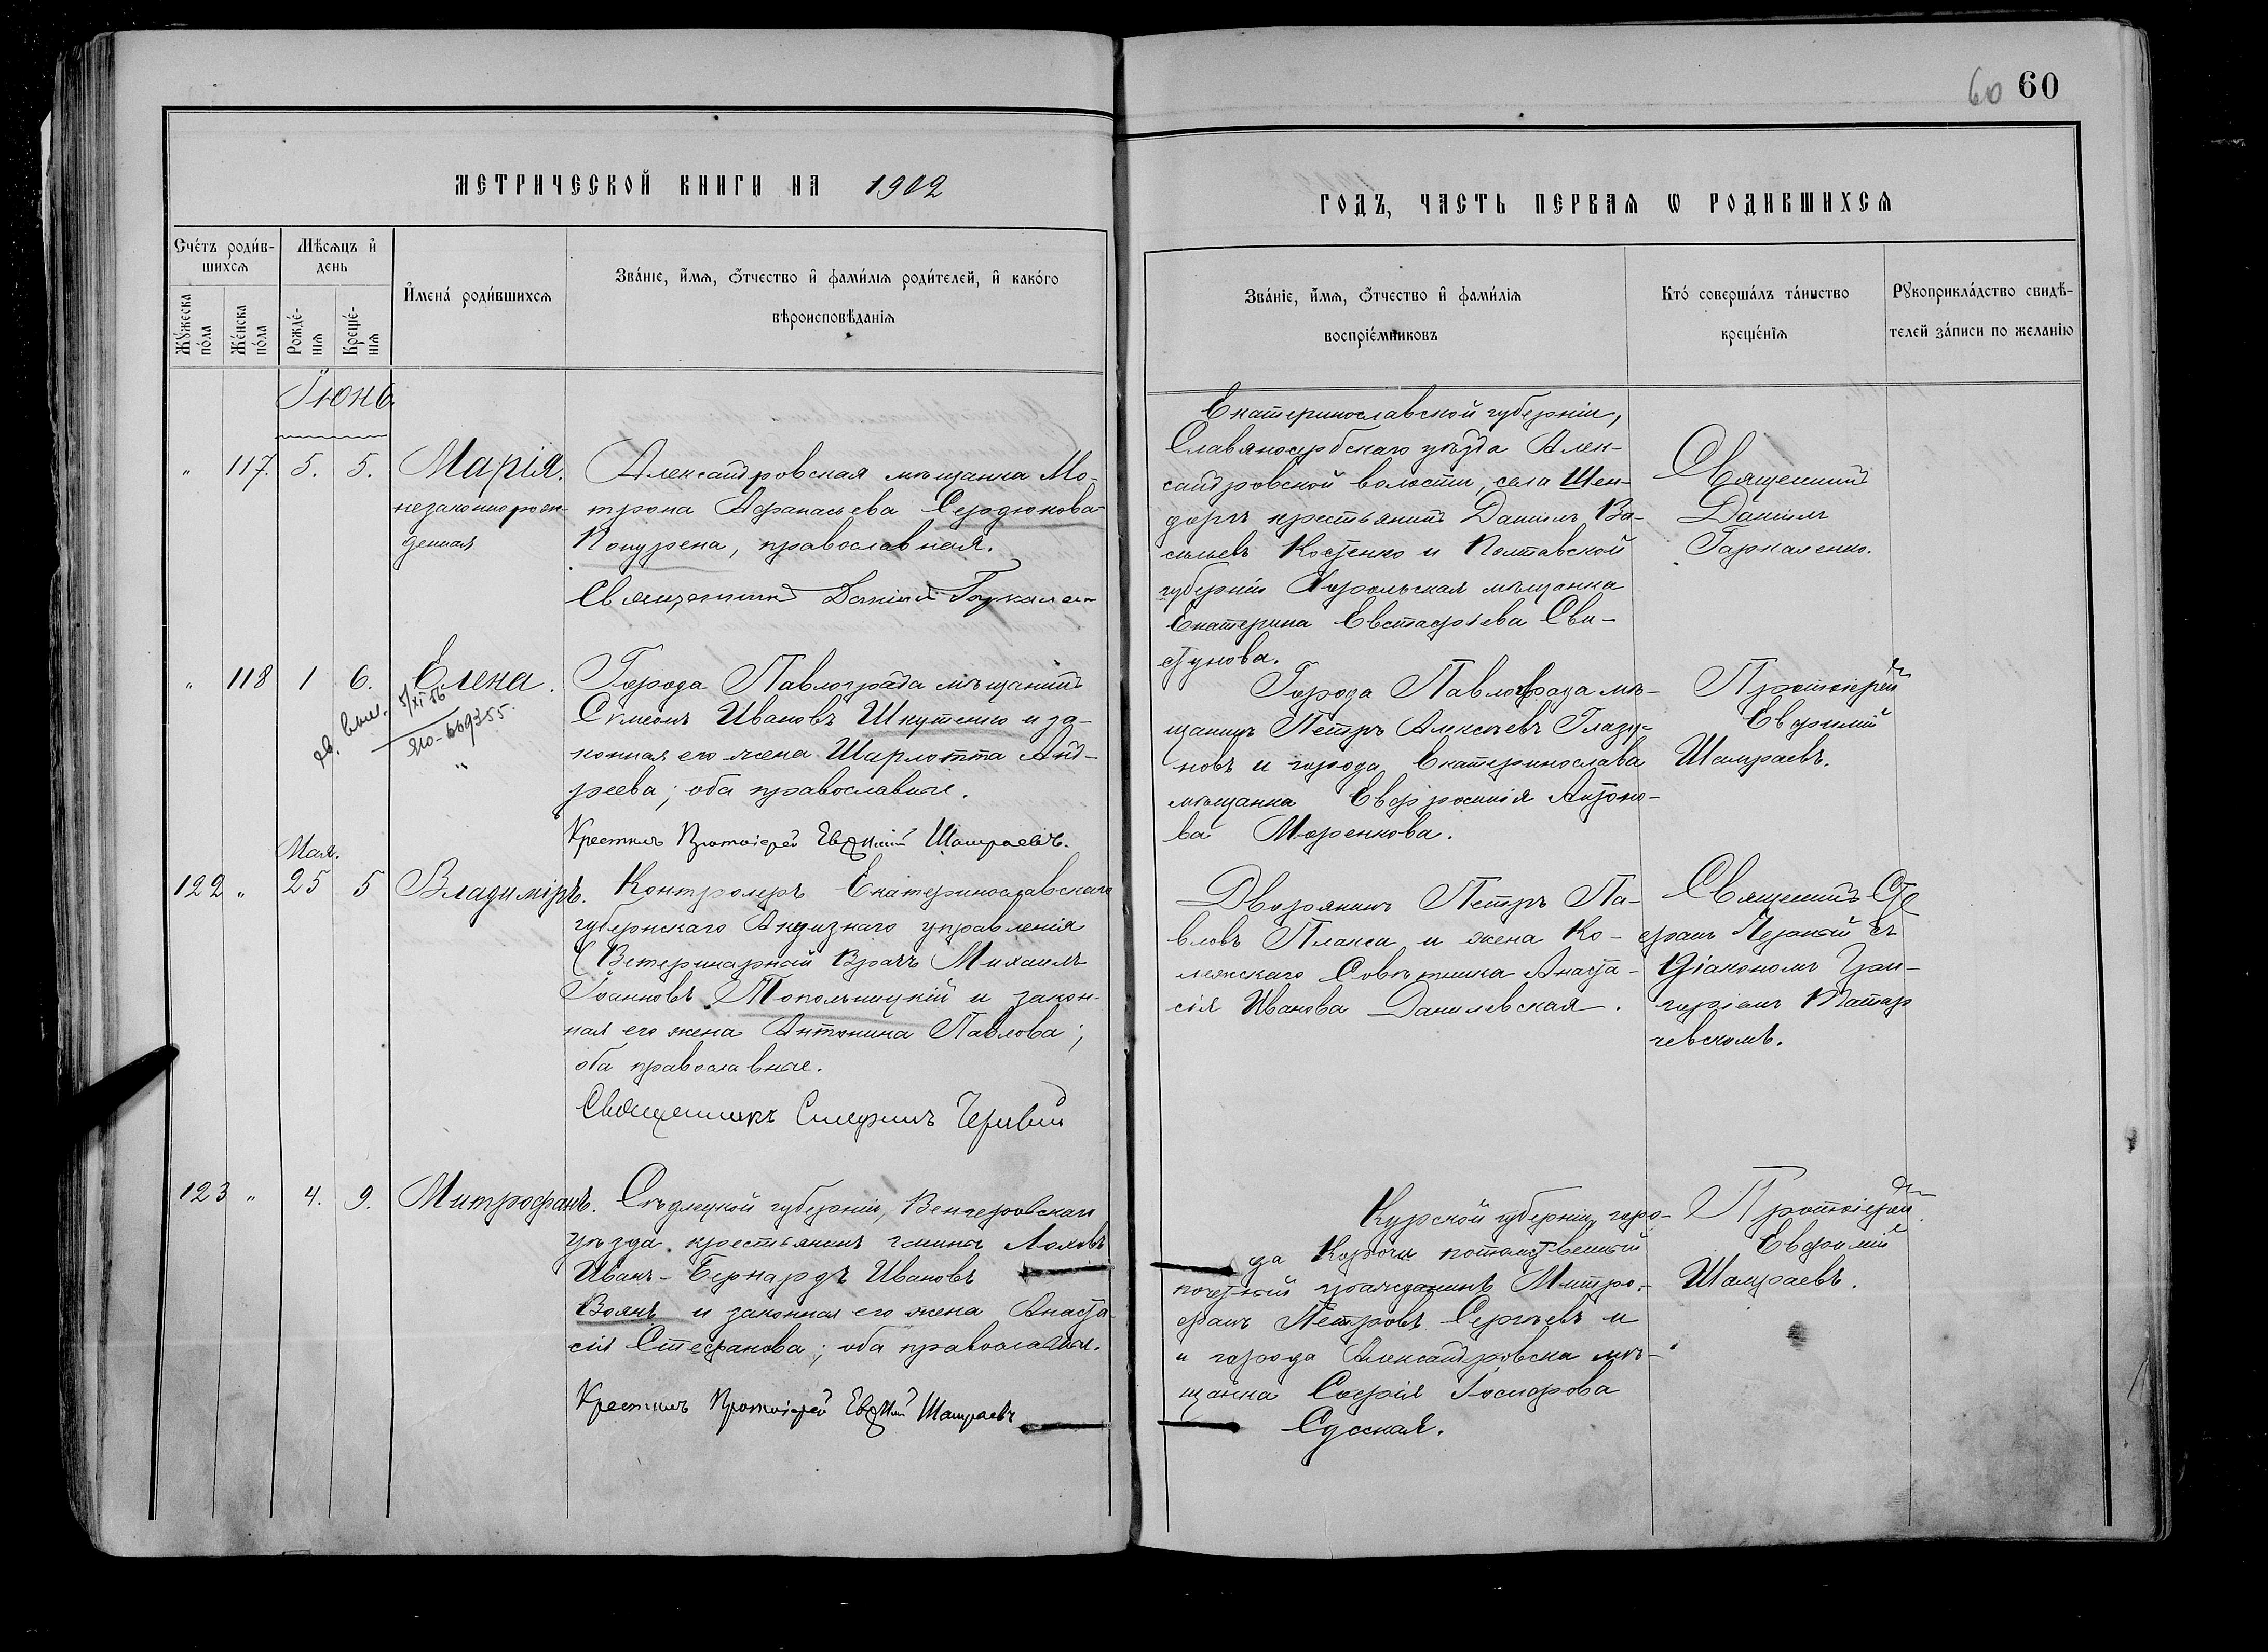 60 60
МЕТРИЧЕСКОЙ КНИГИ НА 1902
ГОДЪ, ЧАСТЬ ПЕРВАЯ Ѡ РОДИВШИХСЯ
Счетъ родив-
шихся
Мѣсяцъ и
день
Мужеска
пола
Женска
пола
Рожде-
нія
Креще-
нія
Имена родившихся
Званіе, имя, отчество и фамилія родителей, и какого
вѣроисповѣданія
Званіе, имя, отчество и фамилія
воспріемниковъ
Кто совершалъ таинство
крещенія
Рукоприкладство свидѣ-
телей записи по желанію
Іюнь.
" 117. 5. 5.
Марія.
незаконнорож-
денная
Александровская мѣщанка Мо-
трона Афанасьева Сердюкова-
православная.
Священникъ Даніилъ
Екатеринославской губерніи,
Славяносербскаго уѣзда Алек-
сандровской волости, села
крестьянинъ Даніилъ Ва-
сильевъ Костенко и Полтавской
губерніи Хорольская мѣщанка
Екатерина Евстафіева Сви-
стунова.
Священникъ
Даніилъ
Гаркаленко.
" 118 1 6.
Елена.
5/XI 56
яю-669355.
"
Города Павлограда мѣщанинъ
Симеонъ Ивановъ Шкутенко и за-
конная его жена Шарлотта Анд-
реева; оба православные.
Крестилъ Протоіерей Евѳимій Шамраевъ.
Города Павлограда мѣ-
щанинъ Петръ Алексѣевъ Глазу-
новъ и города Екатеринослава
мѣщанка Евфросинія Антоно-
ва Моренкова.
Протоіерей
Евфимій
Шамраевъ.
Мая.
122 " 25 5
Владиміръ.
Контролеръ Екатеринославскаго
губернскаго Акцизнаго управленія
Ветеринарный Врачъ Михаилъ
Іоанновъ Топольницкій и закон-
ная его жена Антонина Павлова;
оба православные.
Священникъ
Дворянинъ Петръ Па-
вловъ Плакси и жена Ко-
лежскаго Совѣтника Анаста-
сія Иванова Данилевская.
Священникъ Сте
фанъ съ
Діакономъ Гри-
горіемъ
123 " 4. 9.
Митрофанъ.
Сѣдлецкой губерніи, Венгеровскаго
уѣзда крестьянинъ гмины Лоховъ
Иванъ-Бернардъ Ивановъ
Воянъ и законная его жена Анаста-
сія Стефанова; оба православные.
Крестилъ Протоіерей Евѳимій Шамраевъ
Курской губерніи горо-
да Корочи потомственный
почетный гражданинъ Митро-
фанъ Петровъ Сергѣевъ и
и города Александровска мѣ-
щанка Софія
Протоіерей
Евфимій
Шамраевъ.